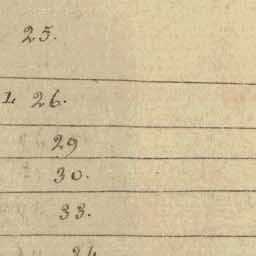 25.
1. 26.
29
30.
33.
34